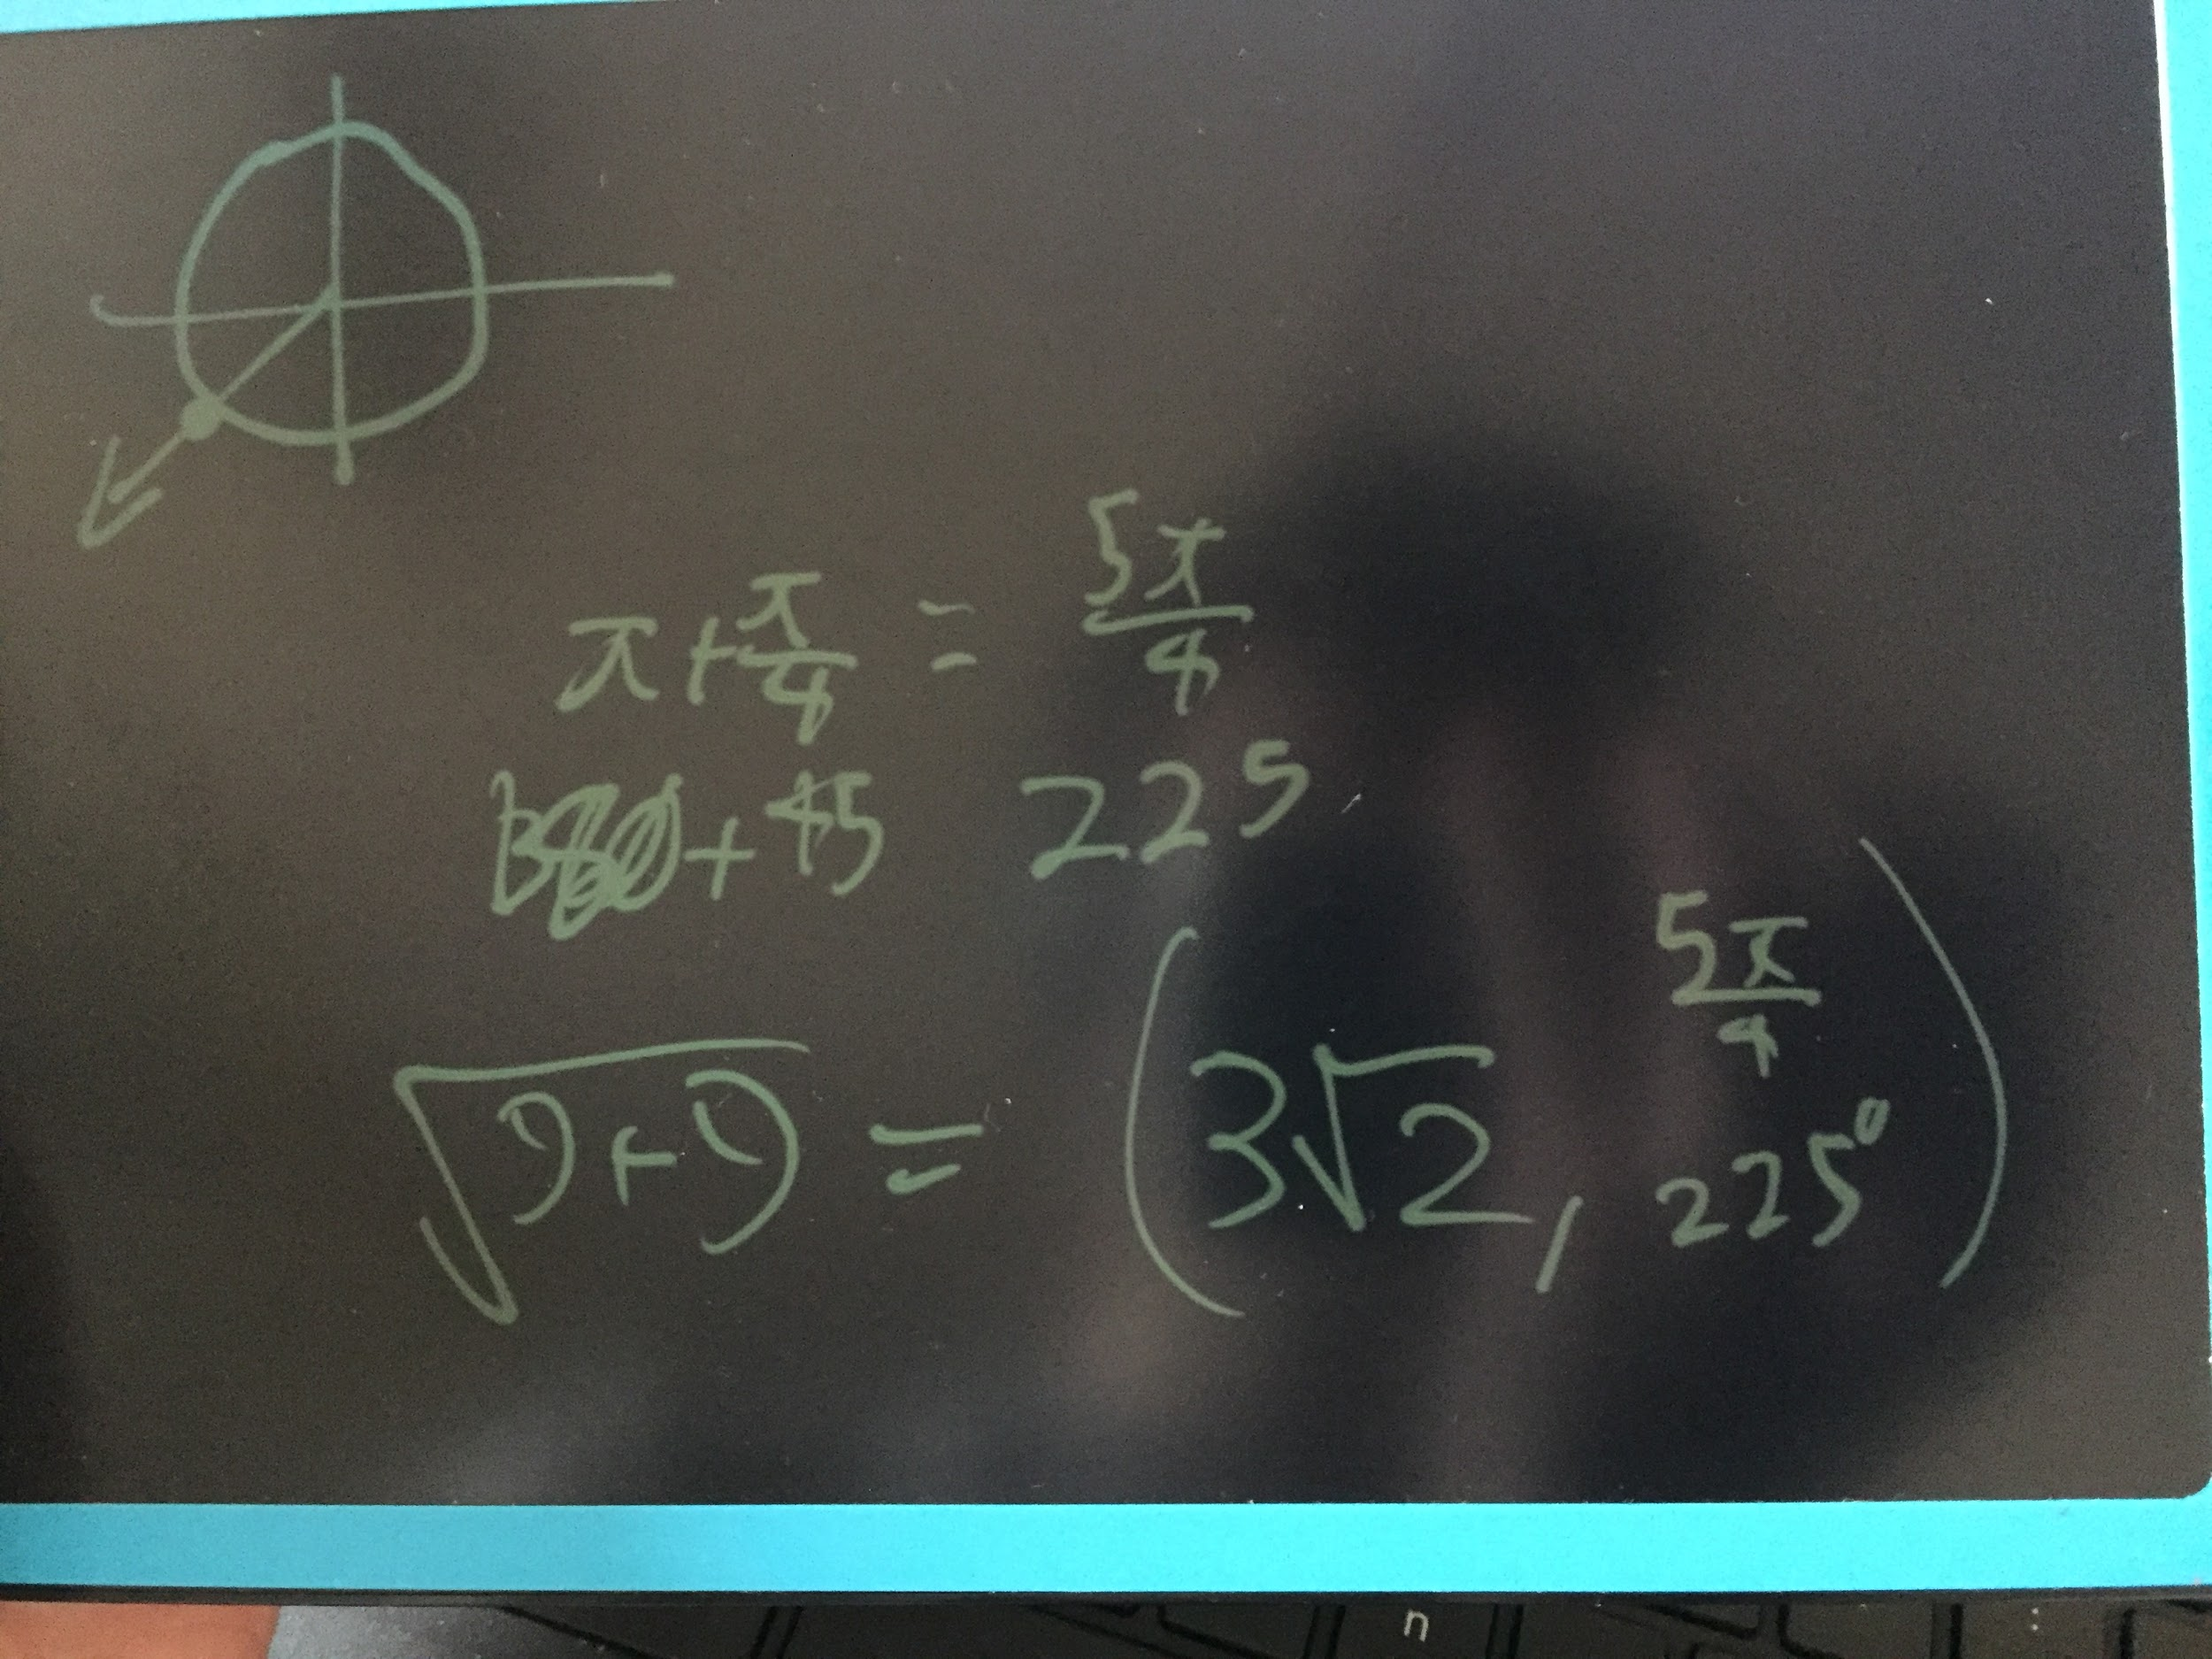 π + π/4 = 5π/4
180 + 45 225
√(9+9) = (3√2, 5π/4 225°)
n